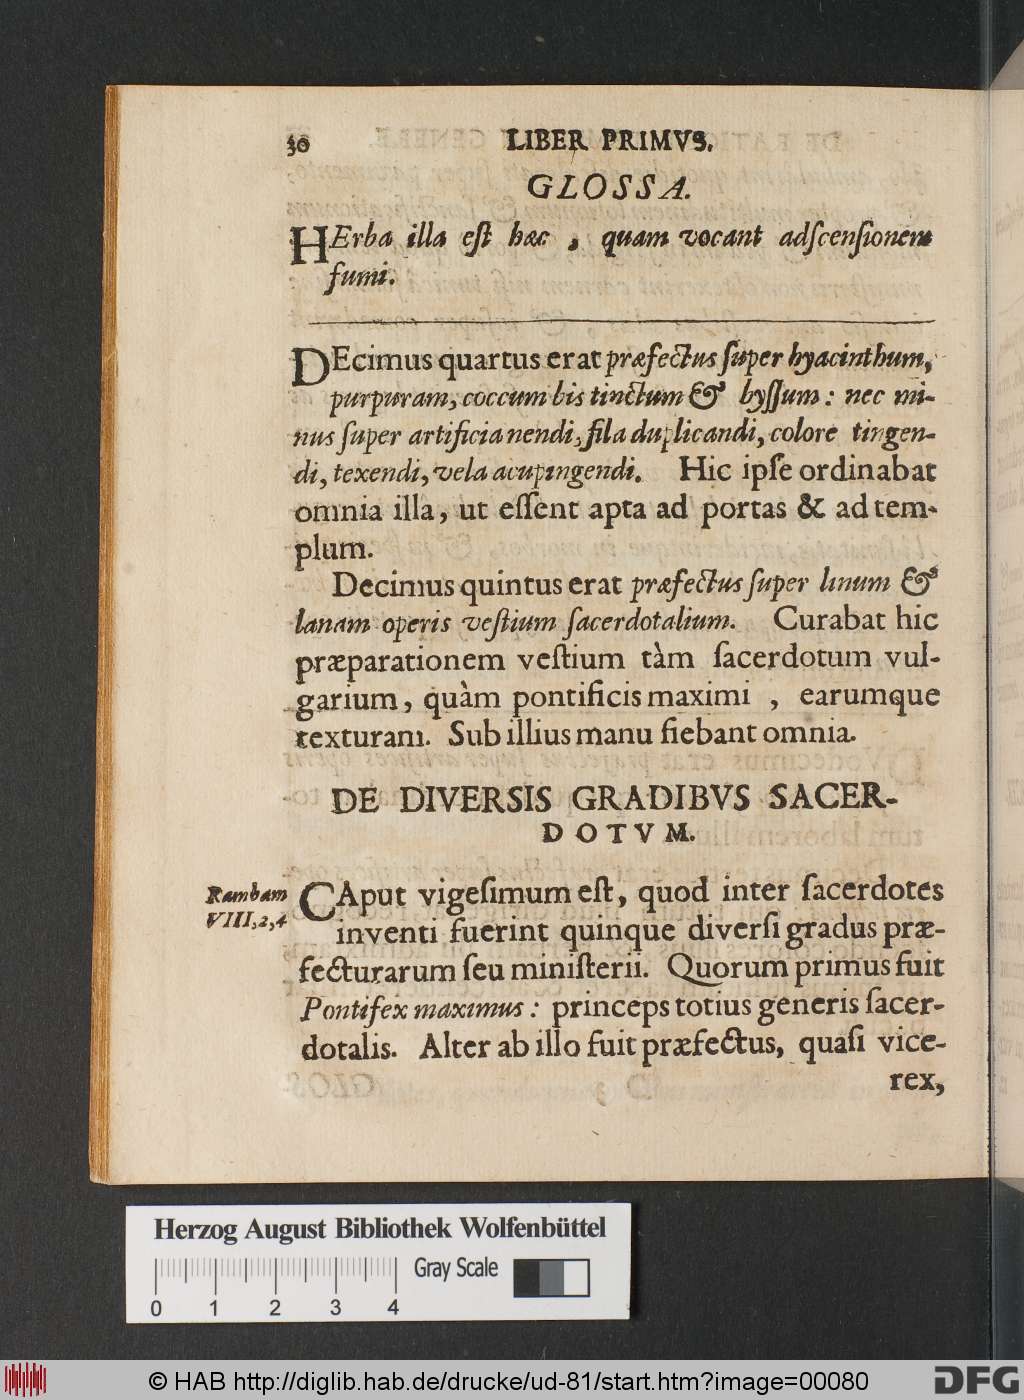 30 LIBER PRIMVS.
GLOSSA.
HErba illa eſt hæc , quam vocant adſcenſionem
fumi.
DEcimus quartus erat præfectus ſuper hyacinthum,
purpuram, coccum bis tinctum & byſſum : nec mi-
nus ſuper artificia nendi, fila duplicandi, colore tingen-
di, texendi, vela acu pingendi. Hic ipſe ordinabat
omnia illa, ut eſſent apta ad portas & ad tem-
plum.
Decimus quintus erat præfectus ſuper linum &
lanam operis veſtium ſacerdotalium. Curabat hic
præparationem veſtium tàm ſacerdotum vul-
garium, quàm pontificis maximi , earumque
texturam. Sub illius manu fiebant omnia.
DE DIVERSIS GRADIBVS SACER-
DOTVM.
Rambam
VIII,2,4
CAput vigeſimum eſt, quod inter ſacerdotes
inventi fuerint quinque diverſi gradus præ-
fecturarum ſeu miniſterii. Quorum primus fuit
Pontifex maximus : princeps totius generis ſacer-
dotalis. Alter ab illo fuit præfectus, quaſi vice-
rex,
Herzog August Bibliothek Wolfenbüttel
Gray Scale
0 1 2 3 4
© HAB http://diglib.hab.de/drucke/ud-81/start.htm?image=00080
DFG